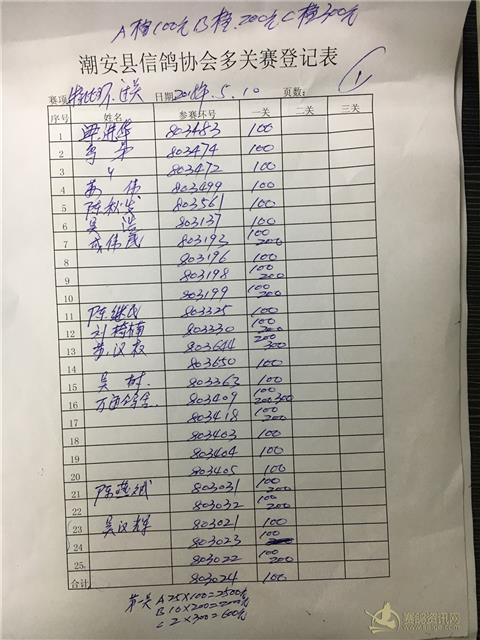 A档100元 B档200元 C档300元
潮安县信鸽协会多关赛登记表
赛项 特比环 过关 日期 2018.5.10 页数: ①
序号 姓名 参赛环号 一关 二关 三关
1 803483 100
2 李弟 803474 100
3 〃 803472 100
4 黄伟 803499 100
5 803561 100
6 吴浩 803137 100
7 成伟茂 803193 100 200
8 803196 100
9 803198 100 200
10 803199 100 200
11 陈继民 803325 100
12 刘梓楠 803330 100 200
13 黄汉权 803644 200 300
14 803650 100
15 吴树 803363 100
16 803409 100 200 300
17 803418 100 200
18 803403 100
19 803404 100
20 803405 100
21 803031 100 200
22 803032 100 200
23 吴汉辉 803021 100
24 803023 100
25 803022 100 200
合计 803024 100
第一关 A 25×100=2500元
B 10×200=2000元
C 2×300=600元
赛鸽资讯网